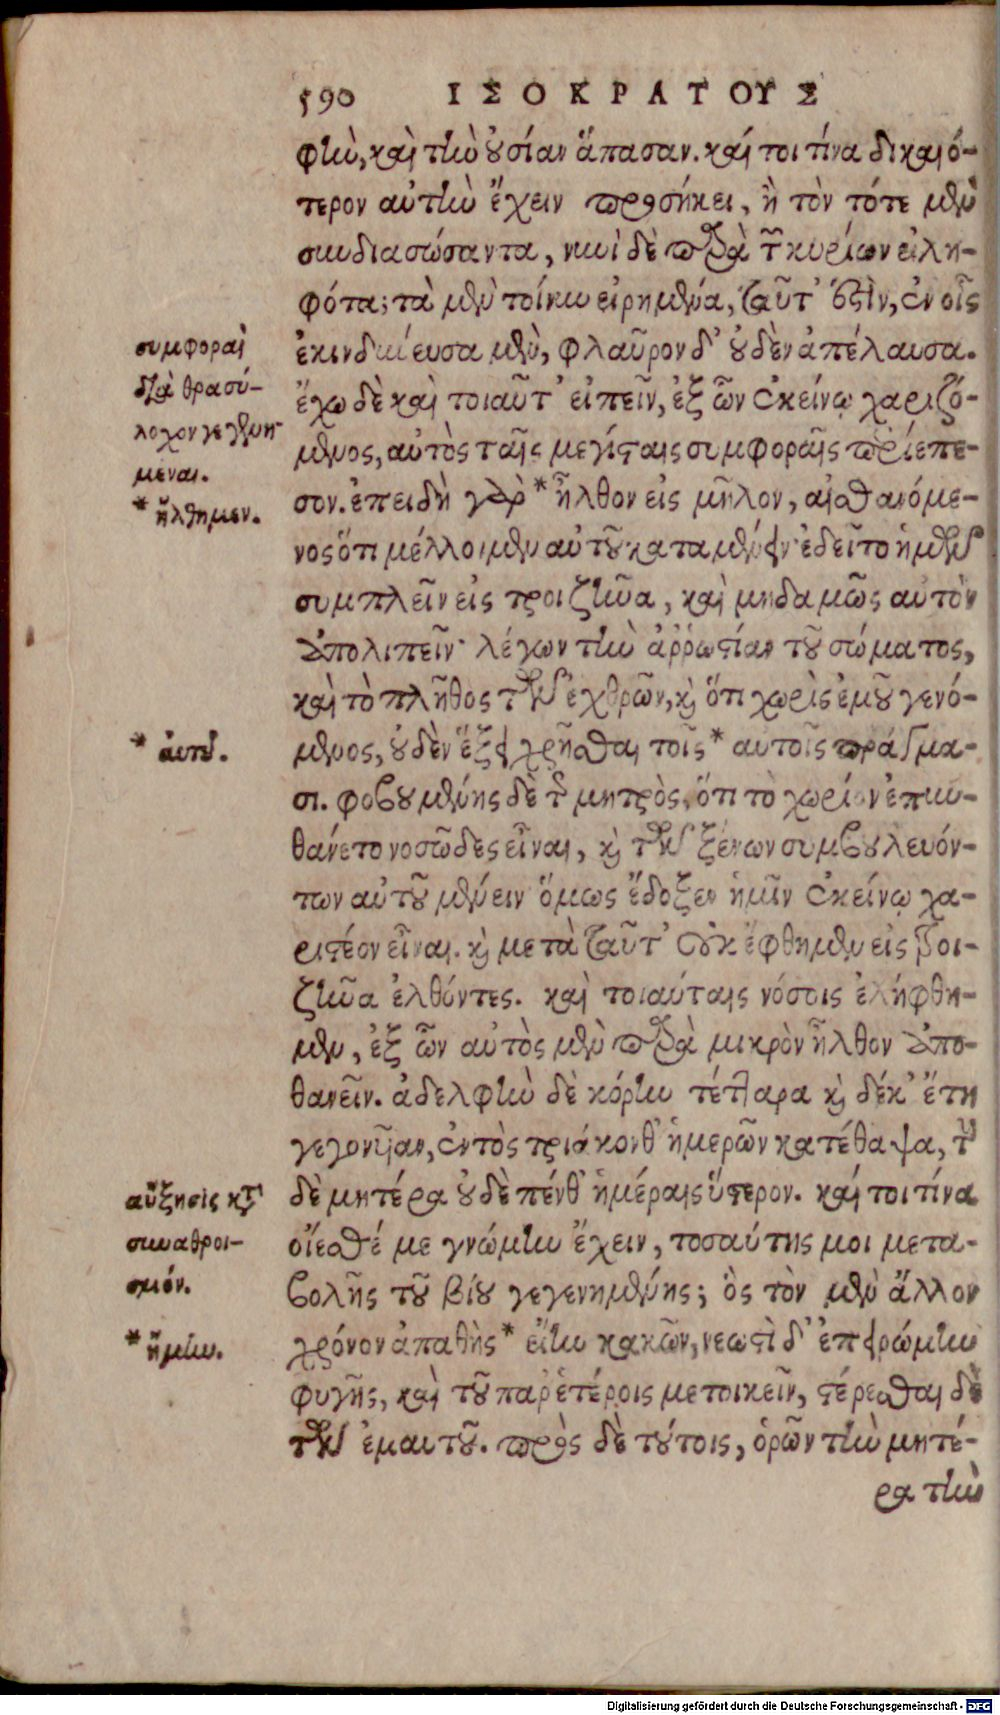 590 ΙΣΟΚΡΑΤΟΥΣ
φὴν, καὶ τὴν οὐσίαν ἅπασαν. καί τοι τίνα δικαιό-
τερον αὐτὴν ἔχειν προσήκει, ἢ τὸν τότε μὲν
συνδιασώσαντα, νυνὶ δὲ παρὰ τῶν κυρίων εἰλη-
φότα; τὰ μὲν τοίνυν εἰρημένα, ταῦτ' ἐστὶν, ἐν οἷς
ἐκινδύνευσα μὲν, φλαῦρον δ' οὐδὲν ἀπέλαυσα.
ἔχω δὲ καὶ τοιαῦτ' εἰπεῖν, ἐξ ὧν ἐκείνῳ χαριζό-
μενος, αὐτὸς ταῖς μεγίσταις συμφοραῖς περιέπε-
σον. ἐπειδὴ γὰρ * ἦλθον εἰς μῆλον, αἰσθανόμε-
νος ὅτι μέλλοιμεν αὐτοῦ καταμένειν· ἐδεῖτο ἡμῶν
συμπλεῖν εἰς τροιζῆνα, καὶ μηδαμῶς αὐτὸν
ἀπολιπεῖν· λέγων τὴν ἀῤῥωστίαν τοῦ σώματος,
καὶ τὸ πλῆθος τῶν ἐχθρῶν, καὶ ὅτι χωρὶς ἐμοῦ γενό-
μενος, οὐδὲν ἕξει χρῆσθαι τοῖς * αυτοῖς πράγμα-
σι. φοβουμένης δὲ τῆς μητρὸς, ὅτι τὸ χωρίον ἐπυν-
θάνετο νοσῶδες εἶναι, καὶ τῶν ξένων συμβουλευόν-
των αὐτοῦ μένειν ὅμως ἔδοξεν ἡμῖν ἐκείνῳ χα-
ριστέον εἶναι. καὶ μετὰ ταῦτ' οὐκ ἔφθημεν εἰς τροι-
ζῆνα ἐλθόντες. καὶ τοιαύταις νόσοις ἐλήφθη-
μεν, ἐξ ὧν αὐτὸς μὲν παρὰ μικρὸν ἦλθον ἀπο-
θανεῖν. ἀδελφὴν δὲ κόρην τέτταρα καὶ δέκ' ἔτη
γεγονυῖαν, ἐντὸς τριάκονθ' ἡμερῶν κατέθαψα, τὴν
δὲ μητέρα οὐδὲ πένθ' ἡμέραις ὕστερον. καί τοι τίνα
οἴεσθέ με γνώμην ἔχειν, τοσαύτης μοι μετα-
βολῆς τοῦ βίου γεγενημένης; ὃς τὸν μὲν ἄλλον
χρόνον ἀπαθὴς * εἴην κακῶν, νεωστὶ δ' ἐπειρώμην
φυγῆς, καὶ τοῦ παρ' ἑτέροις μετοικεῖν, στέρεσθαι δὲ
τῶν ἐμαυτοῦ. πρὸς δὲ τούτοις, ὁρῶν τὴν μητέ-
ρα τὴν
συμφοραὶ
διὰ θρασύ-
λοχον γεγενη-
μέναι.
* ἤλθημεν.
* ἁυτοῦ.
αὔξησις κατὰ
συναθροι-
σμόν.
* ἤμην.
Digitalisierung gefördert durch die Deutsche Forschungsgemeinschaft - DFG